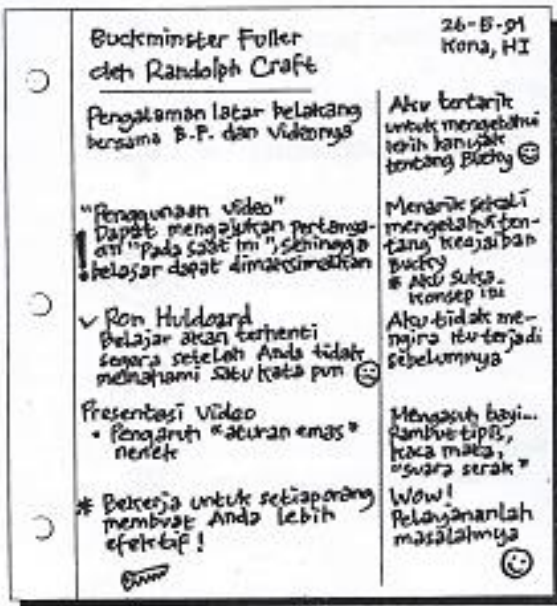 Buckminster Fuller
oleh Randolph Craft
26-5-91
Kona, HI
Pengalaman latar belakang
bersama B.F. dan Videonya
"Penggunaan Video"
! Dapat mengajukan pertanya-
an "Pada saat ini", sehingga
belajar dapat dimaksimalkan
✓ Ron Hubbard
Belajar akan terhenti
segera setelah Anda tidak
memahami satu kata pun
Presentasi Video
• Pengaruh "aturan emas"
nenek
* Bekerja untuk setiap orang
membuat Anda lebih
efektif!
Aku tertarik
untuk mengetahui
lebih banyak
tentang Bucky
Menarik sekali
mengetahui ten-
tang keajaiban
Bucky
* Aku suka
konsep ini
Aku tidak me-
ngira itu terjadi
sebelumnya
Mengasuh bayi...
Rambut tipis,
kaca mata,
"suara serak"
Wow!
Pelayananlah
masalahnya